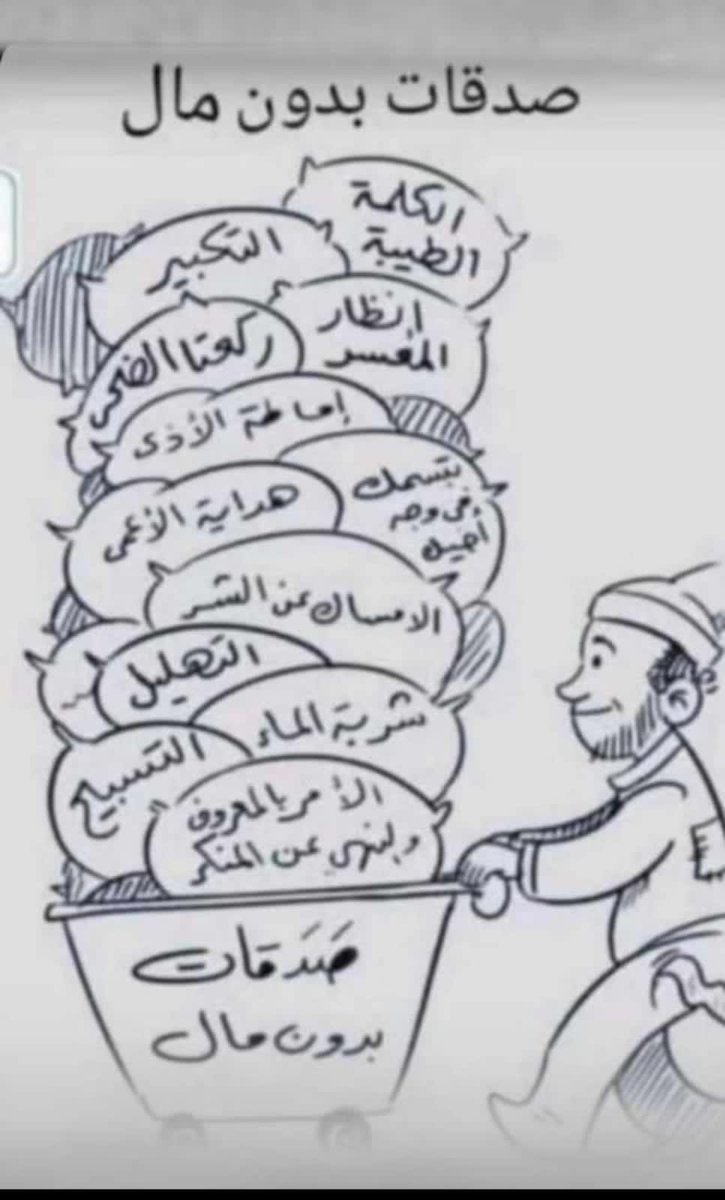 صدقات بدون مال
الكلمة
الطيبة
التكبير
إنظار
المعسر
ركعتا الضحى
إماطة الأذى
تبسمك
في وجه
أخيك
هداية الأعمى
الامساك عن الشر
التهليل
شربة الماء
التسبيح
الأمر بالمعروف
والنهي عن المنكر
صَدَقات
بدون مال